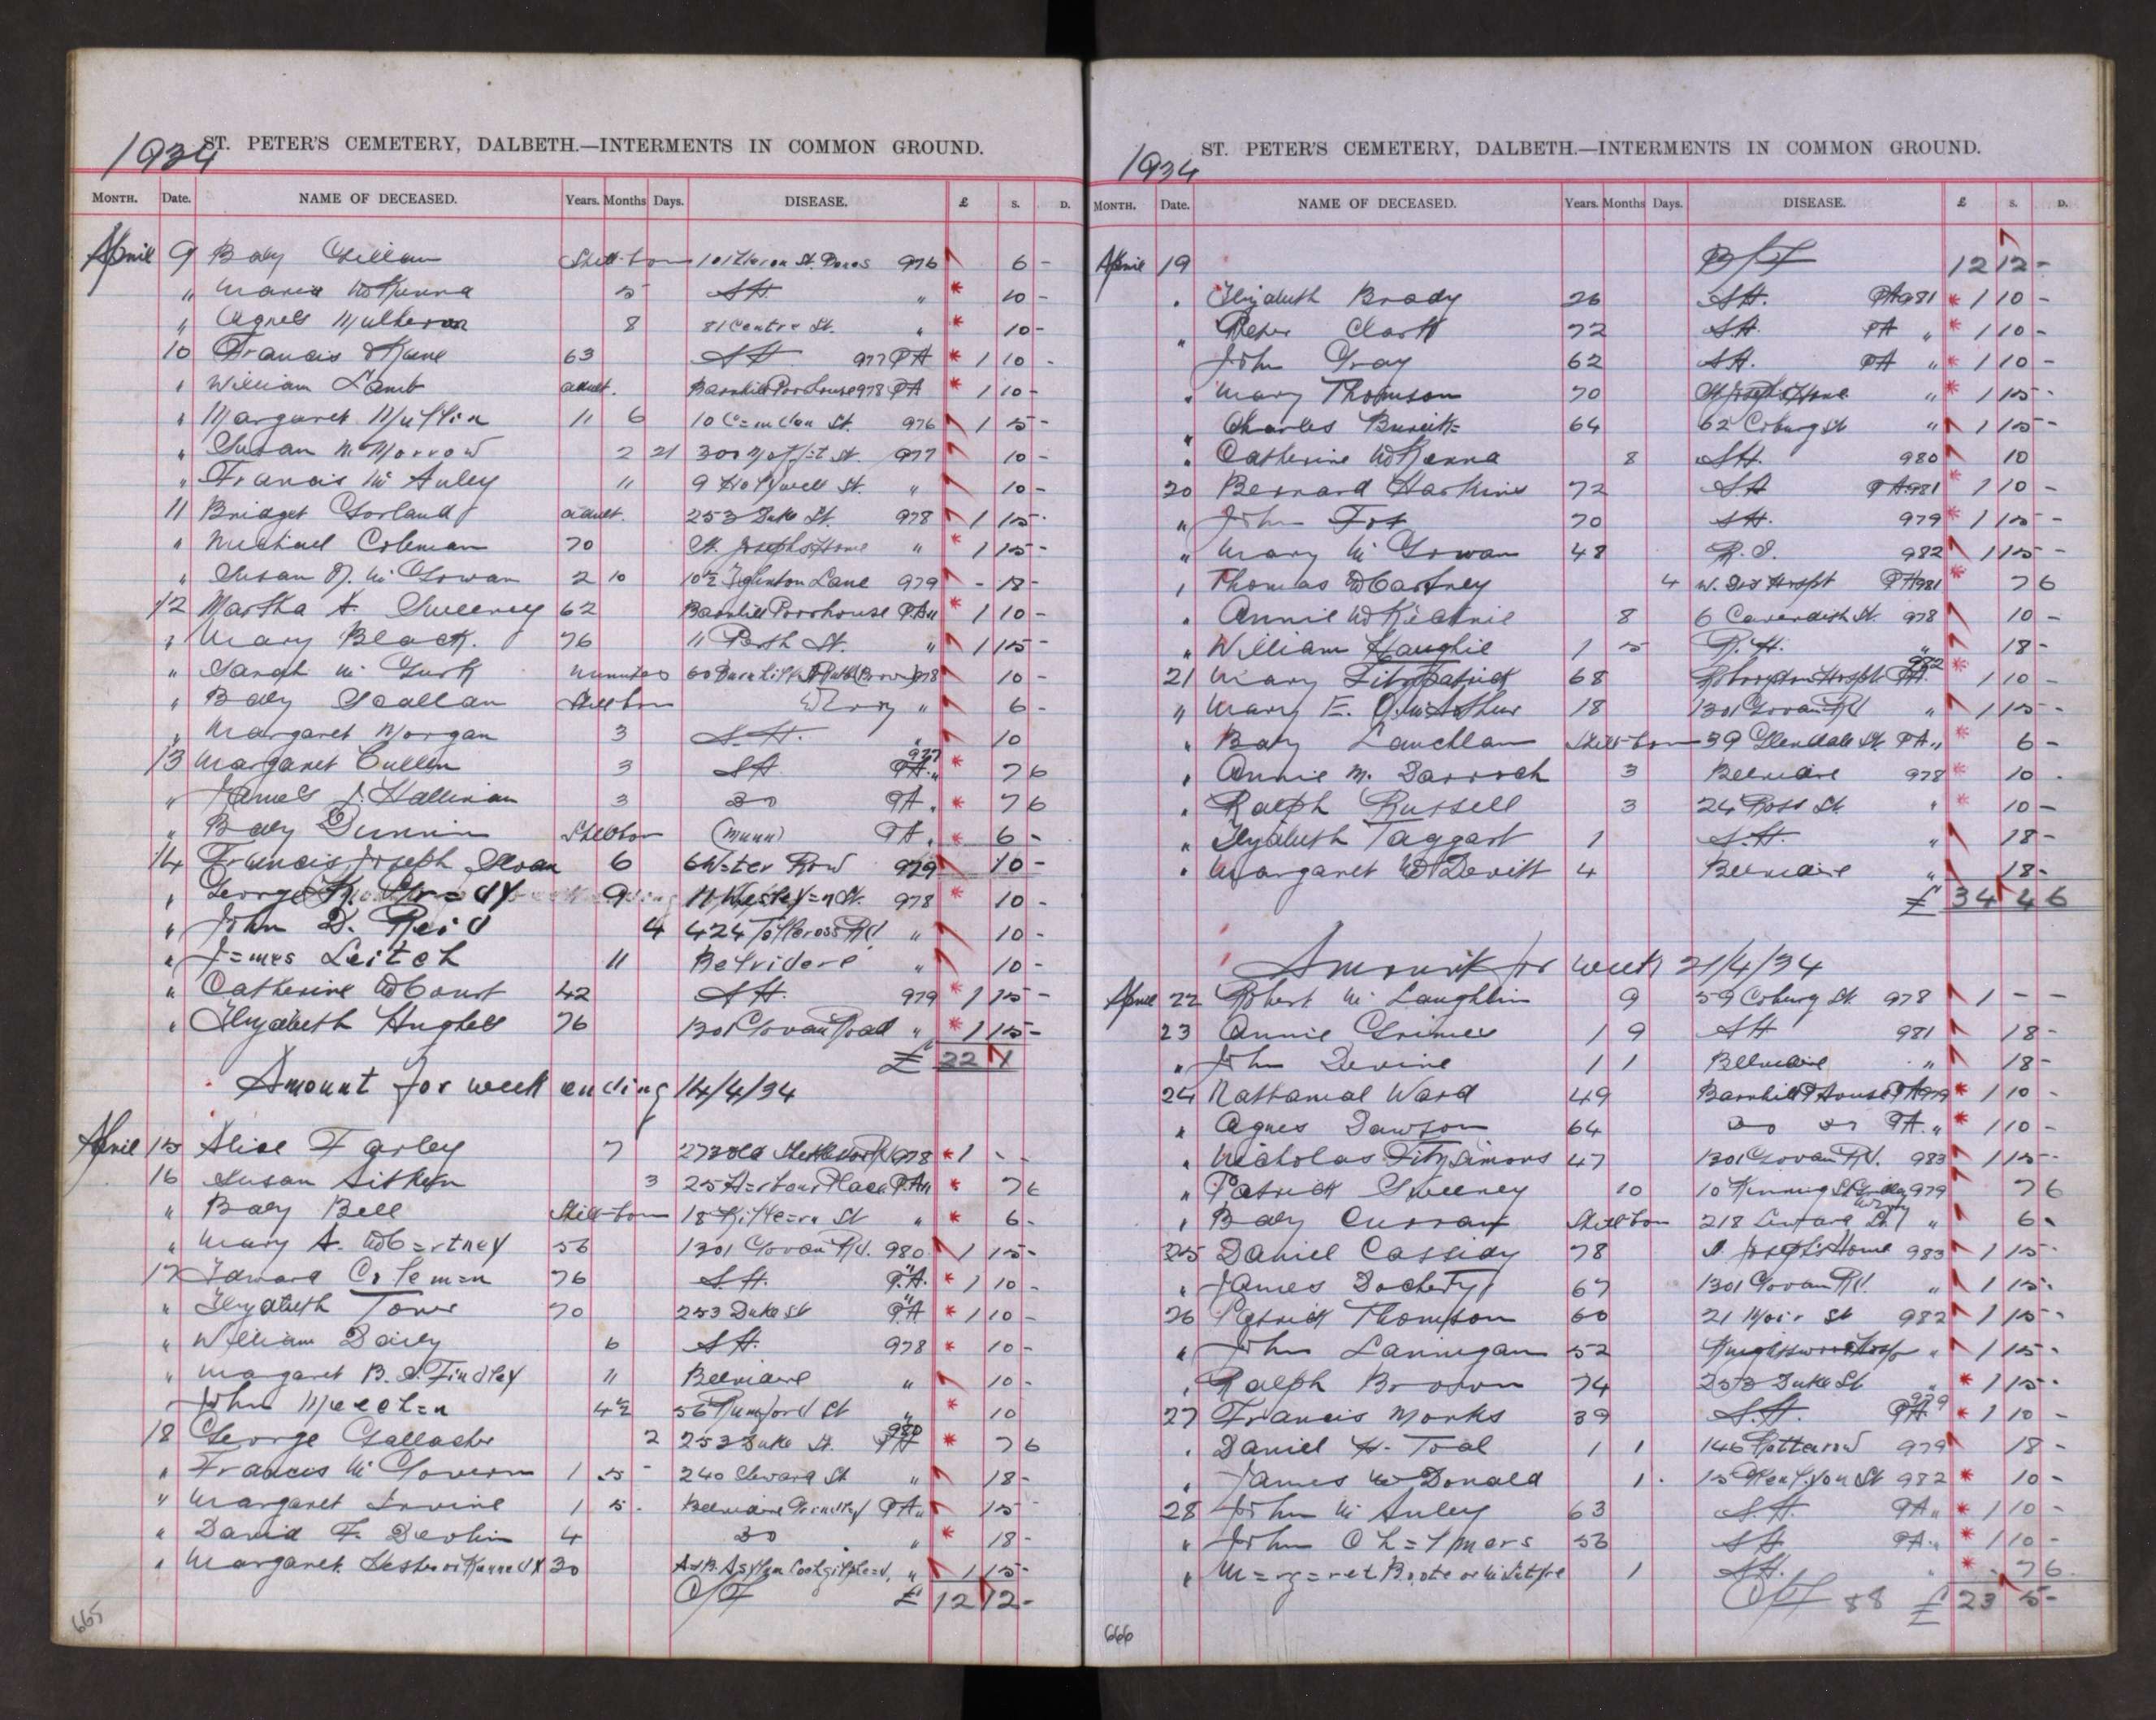 1934
ST. PETER'S CEMETERY, DALBETH.—INTERMENTS IN COMMON GROUND.
MONTH. Date. NAME OF DECEASED. Years. Months Days. DISEASE. £ S. D.
April 9 Baby Gillan Still-born St. 976 6 -
" Maria McKenna 5 S.H. " 10 -
" Agnes Mulheron 8 81 Centre St. " 10 -
10 Francis Kane 63 S.H. 977 PA 1 10 -
" William Lamb adult. Barnhill Poorhouse 978 PA 1 10 -
" Margaret Mullin 11 6 10 Camden St. 976 1 5 -
" Susan McMorrow 2 21 300 Moffat St. 977 10 -
" Francis McAuley 11 9 Holywell St. " 10 -
11 Bridget Gorland adult. 253 Duke St. 978 1 15 -
" Michael Coleman 70 St. Josephs Home " 1 15 -
" Susan McGowan 2 10 10½ Eglinton Lane 979 - 18 -
12 Martha A. Sweeney 62 Barnhill Poorhouse P.A. " 1 10 -
" Mary Black. 76 11 Perth St. " 1 15 -
" Sarah McGurk minutes 60 978 10 -
" Baby Scallan Still born " 6 -
" Margaret Morgan 3 S.H. " 10
13 Margaret Cullen 3 S.H. 977 P.A. " 7 6
" James J. Hallinan 3 do P.A. " 7 6
" Baby Dunnin Stillborn (Munn) P.A. " 6 -
14 Francis Joseph Sloan 6 6 Water Row 979 10 -
" George 9 11 Wesleyan St. 978 10 -
" John D. Reid 4 424 Tollcross Rd. " 10 -
" James Leitch 11 Belvidere " 10 -
" Catherine McCourt 42 S.H. 979 1 15 -
" Elizabeth Hughes 76 1301 Govan Road " 1 15 -
£ 22 1
Amount for week ending 14/4/34
April 15 Alice Farley 7 273 Old Shettleston Rd 978 1 - -
16 Susan Aitken 3 25 Harbour Place P.A. " 7 6
" Baby Bell Still-born 18 St " 6 -
" Mary A. McCartney 56 1301 Govan Rd. 980 1 15 -
17 Edward Coleman 76 S.H. P.A. " 1 10 -
" Elizabeth Toner 70 253 Duke St P.A. " 1 10 -
" William Daily 6 S.H. 978 10 -
" Margaret B. S. Findley 11 Belvidere " 10 -
" John Meechan 4½ 56 Rumford St " 10
18 George Gallacher 2 253 Duke St. 980 PA 7 6
" Francis McGovern 1 5 240 Edward St " 18 -
" Margaret Irvine 1 5 Belvidere P.A. " 15 -
" David F. Devlin 4 do " 18 -
" Margaret or Kennedy 30 Asylum " 1 15 -
C/F £ 12 12 -
665
1934
ST. PETER'S CEMETERY, DALBETH.—INTERMENTS IN COMMON GROUND.
MONTH. Date. NAME OF DECEASED. Years. Months Days. DISEASE. £ S. D.
April 19 B/F 12 12 -
" Elizabeth Brady 26 S.H. PA 981 1 10 -
" Peter Clark 72 S.H. PA " 1 10 -
John Gray 62 S.H. PA " 1 10 -
" Mary Thomson 70 St Josephs Home " 1 15 -
" Charles 64 62 Coburg St " 1 15 -
" Catherine McKenna 8 S.H. 980 10
20 Bernard Harkins 72 S.H. PA 981 1 10 -
" John Fox 70 S.H. 979 1 15 -
" Mary McGowan 48 R.I. 982 1 15 -
" Thomas McCartney 4 W. Dis Hospt PA 981 7 6
" Annie McKechnie 8 6 Cavendish St. 978 10 -
" William Haughie 1 5 R.H. " 18 -
21 Mary Fitzpatrick 68 982 PA. 1 10 -
" Mary E. 18 1301 Govan Rd " 1 15 -
" Baby Lauchlan Still-born 39 Glendale St. PA " 6 -
" Annie M. Darroch 3 Belvidere 978 10 -
" Ralph Russell 3 24 Ross St. " 10 -
" Elizabeth Taggart 1 S.H. " 18 -
" Margaret McDevitt 4 Belvidere " 18 -
£ 34 4 6
Amount for week 21/4/34
April 22 Robert McLaughlin 9 59 Coburg St. 978 1 - -
23 Annie Grimes 1 9 S.H. 981 18 -
" John Devine 1 1 Belvidere " 18 -
24 Nathanial Ward 49 Barnhill P House PA 979 1 10 -
" Agnes Dawson 64 do do PA. " 1 10 -
" Nicholas Fitzsimons 47 1301 Govan Rd. 983 1 15 -
" Patrick Sweeney 10 10 979 7 6
" Baby Curran Still-born 218 St. " 6 -
25 Daniel Cassidy 78 St. Joseph's Home 983 1 15 -
" James Docherty 67 1301 Govan Rd. " 1 15 -
26 Patrick Thomson 60 21 Moir St 982 1 15 -
" John Lannigan 52 Knightswood Hosp " 1 15 -
" Ralph Brown 74 253 Duke St " 1 15 -
27 Francis Monks 39 S.H. 979 PA 1 10 -
" Daniel H. Toal 1 1 146 Rottenrow 979 18 -
" James McDonald 1 15 St 982 10 -
28 John McAuley 63 S.H. PA " 1 10 -
" John 56 S.H. PA " 1 10 -
" Margaret or McIntyre 1 S.H. " 7 6
C/F 88 £ 23 5 -
666